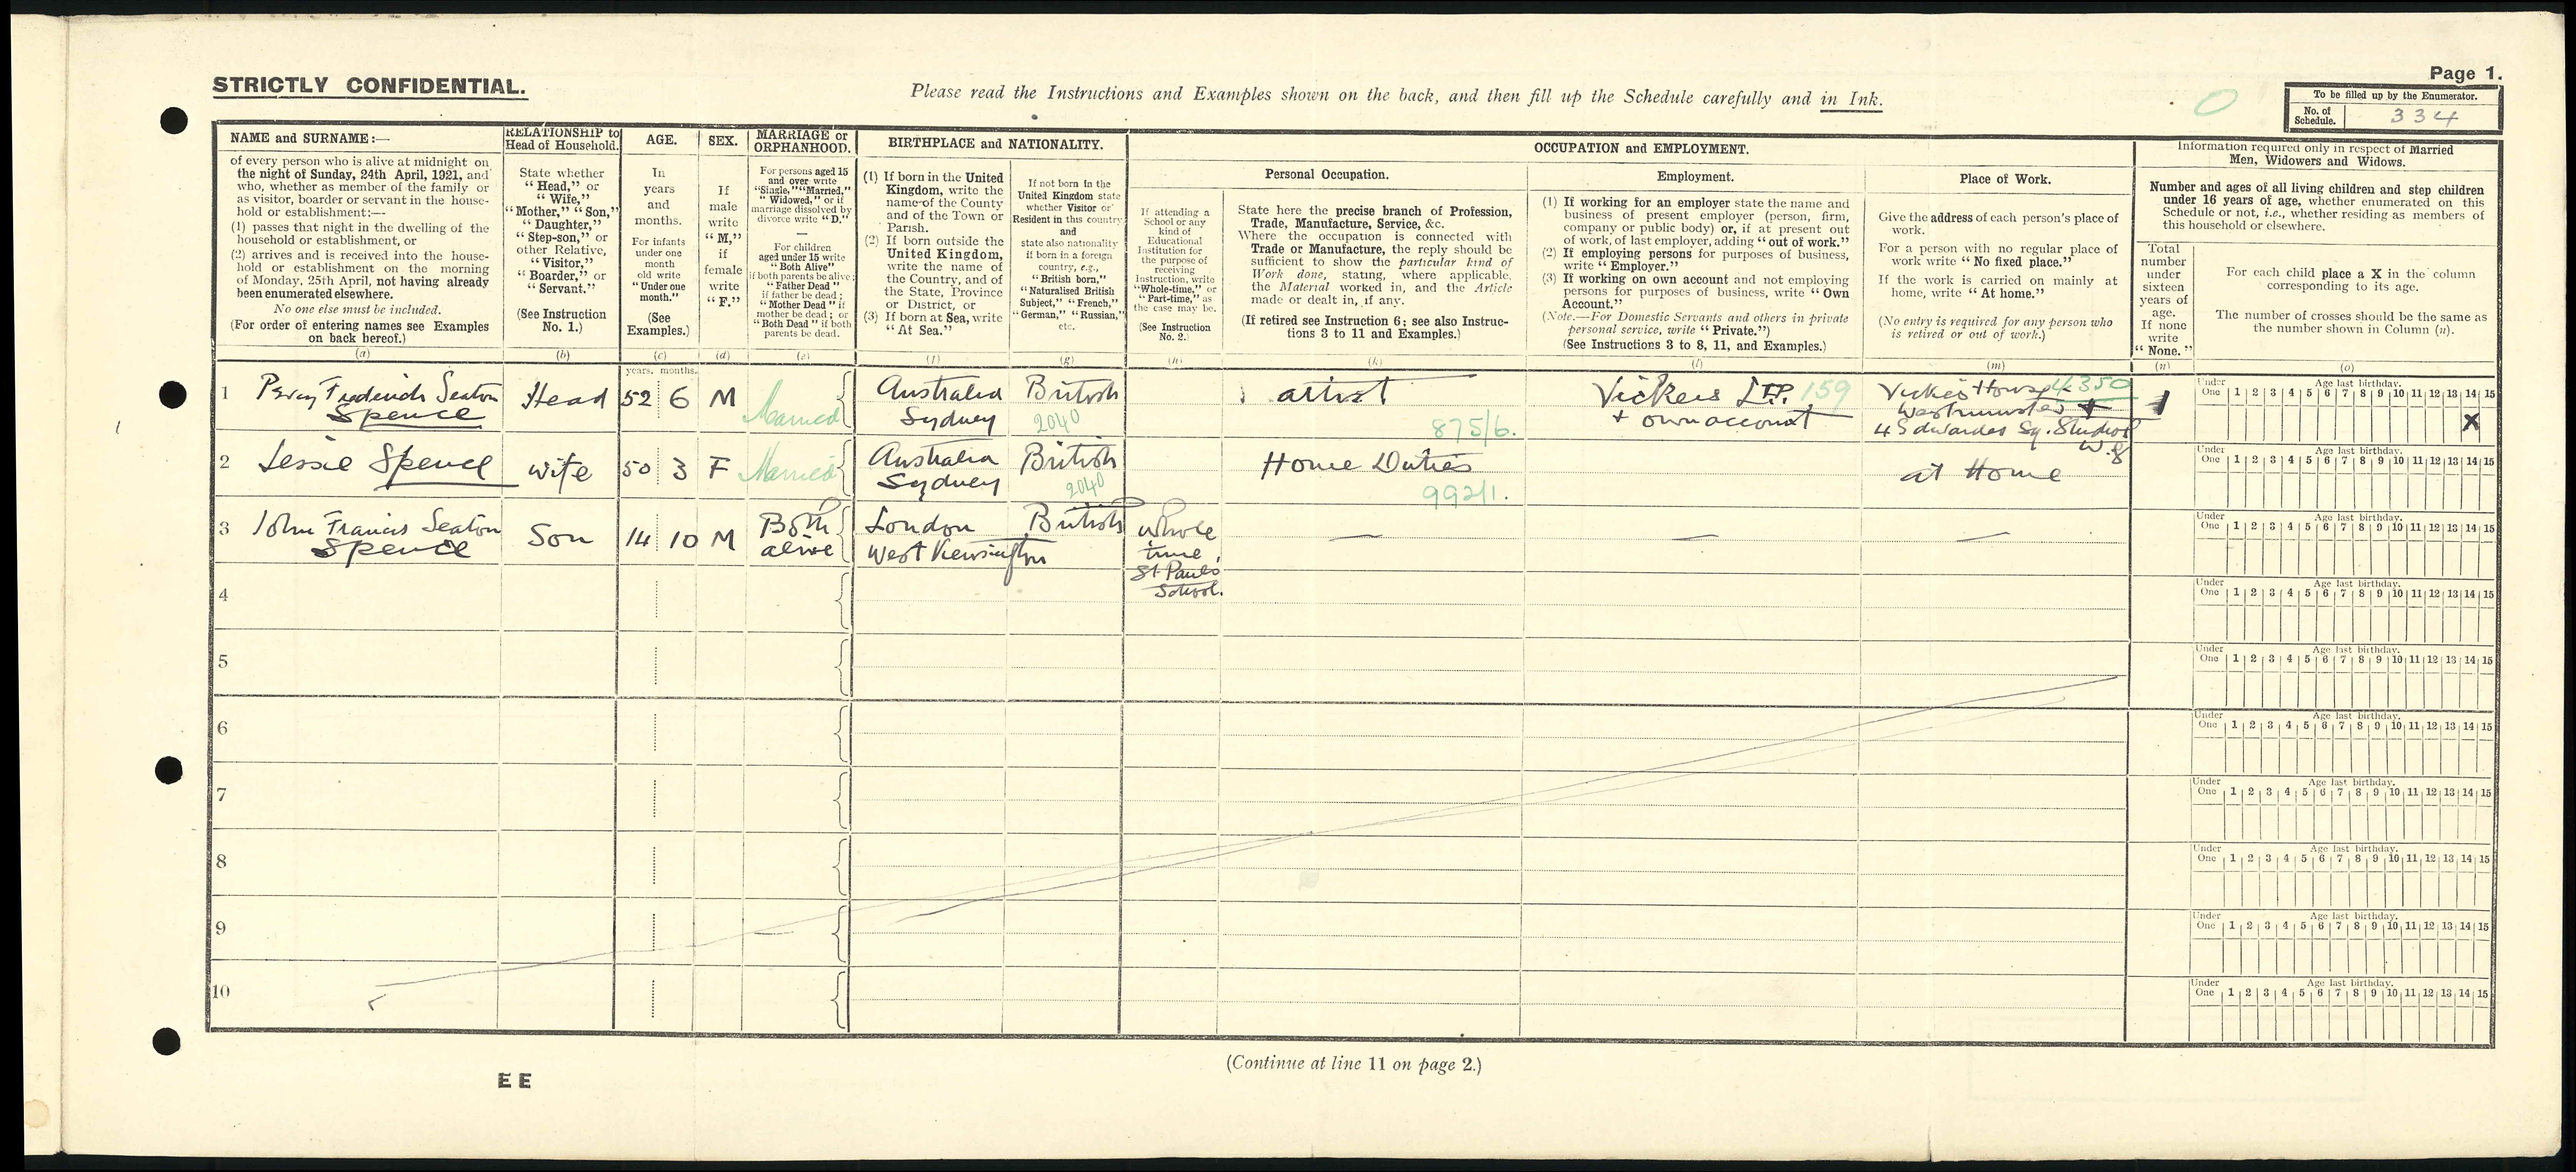 STRICTLY CONFIDENTIAL.
Please read the Instructions and Examples shown on the back, and then fill up the Schedule carefully and in Ink.
Page 1.
To be filled up by the Enumerator.
No. of Schedule. 334
NAME and SURNAME:—
of every person who is alive at midnight on
the night of Sunday, 24th April, 1921, and
who, whether as member of the family or
as visitor, boarder or servant in the house-
hold or establishment:—
(1) passes that night in the dwelling of the
household or establishment, or
(2) arrives and is received into the house-
hold or establishment on the morning
of Monday, 25th April, not having already
been enumerated elsewhere.
No one else must be included.
(For order of entering names see Examples
on back hereof.)
(a)
RELATIONSHIP to
Head of Household.
State whether
"Head," or
"Wife,"
"Mother," "Son,"
"Daughter,"
"Step-son," or
other Relative,
"Visitor,"
"Boarder," or
"Servant."
(See Instruction
No. 1.)
(b)
AGE.
In
years
and
months.
For infants
under one
month
old write
"Under one
month."
(See
Examples.)
(c)
years. months.
SEX.
If
male
write
"M,"
if
female
write
"F."
(d)
MARRIAGE or
ORPHANHOOD.
For persons aged 15
and over write
"Single," "Married,"
"Widowed," or if
marriage dissolved by
divorce write "D."
—
For children
aged under 15 write
"Both Alive"
if both parents be alive;
"Father Dead"
if father be dead;
"Mother Dead" if
mother be dead; or
"Both Dead" if both
parents be dead.
(e)
BIRTHPLACE and NATIONALITY.
(1) If born in the United
Kingdom, write the
name of the County
and of the Town or
Parish.
(2) If born outside the
United Kingdom,
write the name of
the Country, and of
the State, Province
or District, or
(3) If born at Sea, write
"At Sea."
(f)
If not born in the
United Kingdom state
whether Visitor or
Resident in this country;
and
state also nationality
if born in a foreign
country, e.g.,
"British born,"
"Naturalised British
Subject," "French,"
"German," "Russian,"
etc.
(g)
OCCUPATION and EMPLOYMENT.
If attending a
School or any
kind of
Educational
Institution for
the purpose of
receiving
Instruction, write
"Whole-time," or
"Part-time," as
the case may be.
(See Instruction
No. 2.)
(h)
Personal Occupation.
State here the precise branch of Profession,
Trade, Manufacture, Service, &c.
Where the occupation is connected with
Trade or Manufacture, the reply should be
sufficient to show the particular kind of
Work done, stating, where applicable,
the Material worked in, and the Article
made or dealt in, if any.
(If retired see Instruction 6; see also Instruc-
tions 3 to 11 and Examples.)
(k)
Employment.
(1) If working for an employer state the name and
business of present employer (person, firm,
company or public body) or, if at present out
of work, of last employer, adding "out of work."
(2) If employing persons for purposes of business,
write "Employer."
(3) If working on own account and not employing
persons for purposes of business, write "Own
Account."
(Note.—For Domestic Servants and others in private
personal service, write "Private.")
(See Instructions 3 to 8, 11, and Examples.)
(l)
Place of Work.
Give the address of each person's place of
work.
For a person with no regular place of
work write "No fixed place."
If the work is carried on mainly at
home, write "At home."
(No entry is required for any person who
is retired or out of work.)
(m)
Information required only in respect of Married
Men, Widowers and Widows.
Number and ages of all living children and step children
under 16 years of age, whether enumerated on this
Schedule or not, i.e., whether residing as members of
this household or elsewhere.
Total
number
under
sixteen
years of
age.
If none
write
"None."
(n)
For each child place a X in the column
corresponding to its age.
The number of crosses should be the same as
the number shown in Column (n).
(o)
1 Percy Frederick Seaton Spence Head 52 6 M Married Australia Sydney British 2040 artist 875/6. Vickers LTD. 159 + own account Vickers House 4350 Westminster + 4 Edwardes Sq. Studios W.8 1 X
Under One Age last birthday. 1 2 3 4 5 6 7 8 9 10 11 12 13 14 15
2 Jessie Spence wife 50 3 F Married Australia Sydney British 2040 Home Duties 992/1. at Home
Under One Age last birthday. 1 2 3 4 5 6 7 8 9 10 11 12 13 14 15
3 John Francis Seaton Spence Son 14 10 M Both alive London West Kensington British whole time, St. Pauls School. — — —
Under One Age last birthday. 1 2 3 4 5 6 7 8 9 10 11 12 13 14 15
4
Under One Age last birthday. 1 2 3 4 5 6 7 8 9 10 11 12 13 14 15
5
Under One Age last birthday. 1 2 3 4 5 6 7 8 9 10 11 12 13 14 15
6
Under One Age last birthday. 1 2 3 4 5 6 7 8 9 10 11 12 13 14 15
7
Under One Age last birthday. 1 2 3 4 5 6 7 8 9 10 11 12 13 14 15
8
Under One Age last birthday. 1 2 3 4 5 6 7 8 9 10 11 12 13 14 15
9
Under One Age last birthday. 1 2 3 4 5 6 7 8 9 10 11 12 13 14 15
10
Under One Age last birthday. 1 2 3 4 5 6 7 8 9 10 11 12 13 14 15
(Continue at line 11 on page 2.)
E E